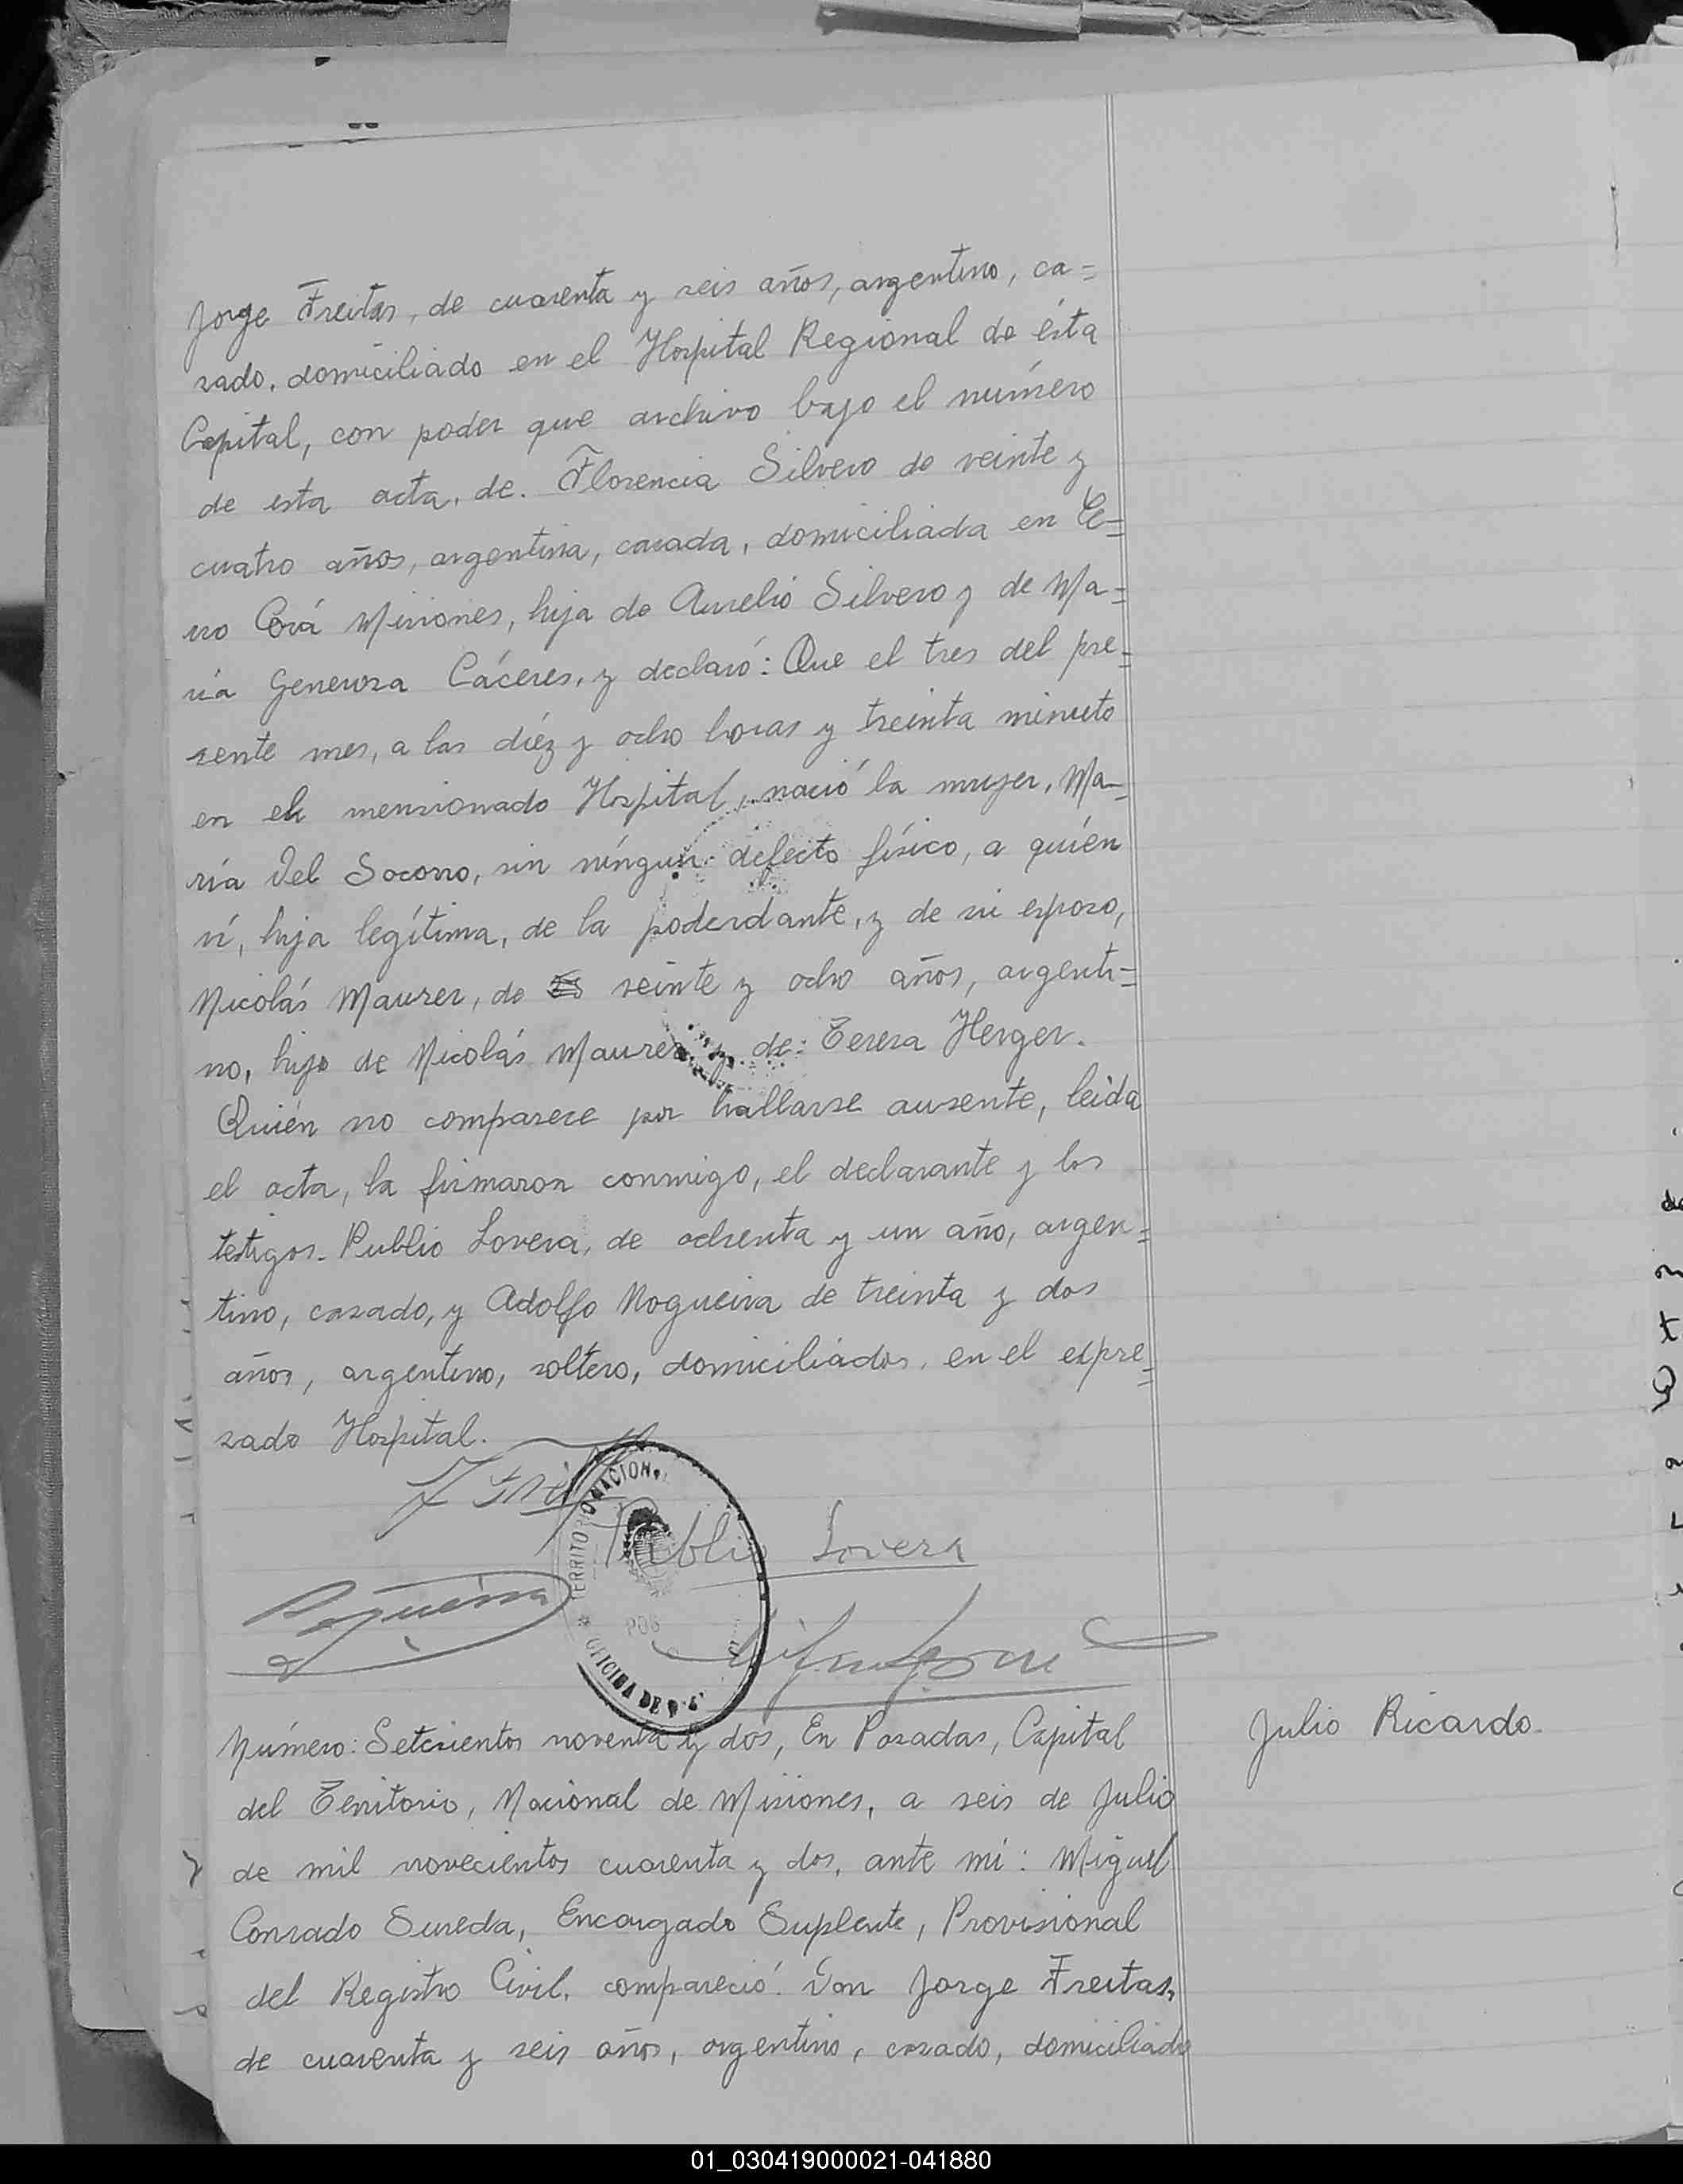 Jorge Freitas, de cuarenta y seis años, argentino, ca=
sado, domiciliado en el Hospital Regional de ésta
Capital, con poder que archivo bajo el número
de esta acta, de. Florencia Silvero de veinte y
cuatro años, argentina, casada, domiciliada en Ce=
rro Corá Misiones, hija de Aurelio Silvero y de Ma=
ria Generosa Cáceres, y declaró: Que el tres del pre=
sente mes, a las diéz y ocho horas y treinta minuto
en el mensionado Hospital, nació la mujer, Ma=
ría Del Socorro, sin níngun defecto físico, a quién
ví, hija legítima, de la poderdante, y de su esposo,
Nicolás Maurer, de veinte y ocho años, argenti=
no, hijo de Nicolás Maurer y de: Teresa Herger.
Quién no comparece por hallarse ausente, leida
el acta, la firmaron conmigo, el declarante y los
testigos. Publio Lovera, de ochenta y un año, argen=
tino, casado, y Adolfo Nogueira de treinta y dos
años, argentino, soltero, domiciliados, en el expre=
sado Hospital.
TERRITORIO NACIONAL
Publio Lovera
Nogueira
POS
OFICINA DE
Número: Setcientos noventa y dos, En Posadas, Capital
Julio Ricardo.
del Territorio, Nacional de Misiones, a seis de Julio
de mil novecientos cuarenta y dos, ante mi: Miguel
Conrado Sureda, Encargado Suplente, Provisional
del Registro Civil, compareció: Don Jorge Freitas,
de cuarenta y seis años, argentino, casado, domiciliado
01_030419000021-041880